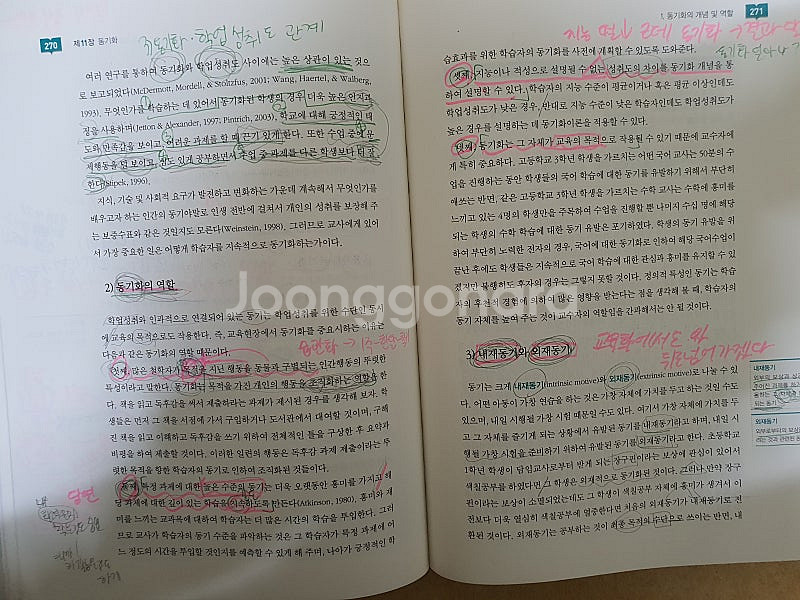 270 제11장 동기화
동기화·학업성취도 관계
여러 연구를 통하여 동기화와 학업성취도 사이에는 높은 상관이 있는 것으
로 보고되었다(McDermott, Mordell, & Stoltzfus, 2001; Wang, Haertel, & Walberg,
1993). 무엇인가를 학습하는 데 있어서 동기화된 학생의 경우 더욱 높은 인지과
정을 사용하며(Jetton & Alexander, 1997; Pintrich, 2003), 학교에 대해 긍정적인 태
도와 만족감을 보이고, 어려운 과제를 할 때 끈기 있게 한다. 또한 수업 중에 문
제행동을 덜 보이고, 밀도 있게 공부하면서 수업 중 과제를 다른 학생보다 더 잘
한다(Stipek, 1996).
지식, 기술 및 사회적 요구가 발전하고 변화하는 가운데 계속해서 무엇인가를
배우고자 하는 인간의 동기야말로 인생 전반에 걸쳐서 개인의 성취를 보장해 주
는 보증수표와 같은 것일지도 모른다(Weinstein, 1998). 그러므로 교사에게 있어
서 가장 중요한 일은 어떻게 학습자를 지속적으로 동기화하는가이다.
2) 동기화의 역할
학업성취와 인과적으로 연결되어 있는 동기는 학업성취를 위한 수단인 동시
에 교육의 목적으로도 작용한다. 즉, 교육현장에서 동기화를 중요시하는 이유는
다음과 같은 동기화의 역할 때문이다.
첫째, 많은 철학자가 목적을 지닌 행동을 동물과 구별되는 인간행동의 뚜렷한
특성이라고 말한다. 동기화는 목적을 가진 개인의 행동을 조직화하는 역할을 한
다. 책을 읽고 독후감을 써서 제출하라는 과제가 제시된 경우를 생각해 보자. 학
생들은 먼저 그 책을 서점에 가서 구입하거나 도서관에서 대여할 것이며, 구해
진 책을 읽고 이해하고 독후감을 쓰기 위하여 전체적인 틀을 구상한 후 요약과
비평을 하여 제출할 것이다. 이러한 일련의 행동은 독후감 과제 제출이라는 뚜
렷한 목적을 향한 학습자의 동기로 인하여 조직화된 것들이다.
둘째, 특정 과제에 대한 높은 수준의 동기는 더욱 오랫동안 흥미를 가지고 해
당 과제에 대한 깊이 있는 학습을 지속하도록 만든다(Atkinson, 1980). 흥미와 재
미를 느끼는 교과목에 대하여 학습자는 더 많은 시간의 학습을 투입한다. 그러
므로 교사가 학습자의 동기 수준을 파악하는 것은 그 학습자가 특정 과제에 어
느 정도의 시간을 투입할 것인지를 예측할 수 있게 해 주며, 나아가 긍정적인 학
당연
1. 동기화의 개념 및 역할 271
습효과를 위한 학습자의 동기화를 사전에 계획할 수 있도록 도와준다.
셋째, 지능이나 적성으로 설명될 수 없는 성취도의 차이를 동기화 개념을 통
하여 설명할 수 있다. 학습자의 지능 수준이 평균이거나 혹은 평균 이상인데도
학업성취도가 낮은 경우, 반대로 지능 수준이 낮은 학습자인데도 학업성취도가
높은 경우를 설명하는 데 동기화이론을 적용할 수 있다.
넷째, 동기화는 그 자체가 교육의 목적으로 작용될 수 있기 때문에 교수자에
게 특히 중요하다. 고등학교 3학년 학생을 가르치는 어떤 국어 교사는 50분의 수
업을 진행하는 동안 학생들의 국어 학습에 대한 동기를 유발하기 위해서 무단히
애쓰는 반면, 같은 고등학교 3학년 학생을 가르치는 수학 교사는 수학에 흥미를
느끼고 있는 4명의 학생만을 주목하여 수업을 진행할 뿐 나머지 수십 명에 해당
되는 학생의 수학 학습에 대한 동기 유발을 포기하였다. 학생의 동기 유발을 위
하여 부단히 노력한 전자의 경우, 국어에 대한 동기화로 인하여 해당 국어수업이
끝난 후에도 학생들은 지속적으로 국어 학습에 대한 관심과 흥미를 유지할 수 있
겠지만 불행히도 후자의 경우는 그렇지 못할 것이다. 정의적 특성인 동기는 학습
자의 후천적 경험에 의하여 많은 영향을 받는다는 점을 생각해 볼 때, 학습자의
동기 자체를 높여 주는 것이 교수자의 역할임을 간과해서는 안 될 것이다.
3) 내재동기와 외재동기
동기는 크게 내재동기(intrinsic motive)와 외재동기(extrinsic motive)로 나눌 수 있
다. 어떤 아동이 가창 연습을 하는 것은 가창 자체에 가치를 두고 하는 것일 수도
있으며, 내일 시행될 가창 시험 때문일 수도 있다. 여기서 가창 자체에 가치를 두
고 그 자체를 즐기게 되는 상황에서 유발된 동기를 내재동기라고 하며, 내일 시
행될 가창 시험을 준비하기 위하여 유발된 동기를 외재동기라고 한다. 초등학교
1학년 학생이 담임교사로부터 받게 되는 장구핀이라는 보상에 관심이 있어서
색칠공부를 하였다면 그 학생은 외적으로 동기화된 것이다. 그러나, 만약 장구
핀이라는 보상이 소멸되었는데도 그 학생이 색칠공부 자체에 흥미가 생겨서 이
전보다 더욱 열심히 색칠공부에 열중한다면 처음의 외재동기가 내재동기로 진
환된 것이다. 외재동기는 공부하는 것이 최종 목적의 수단으로 쓰이는 반면, 내
내재동기
외재동기
Joonggonara